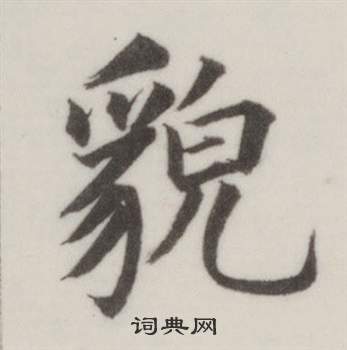 貌
词典网